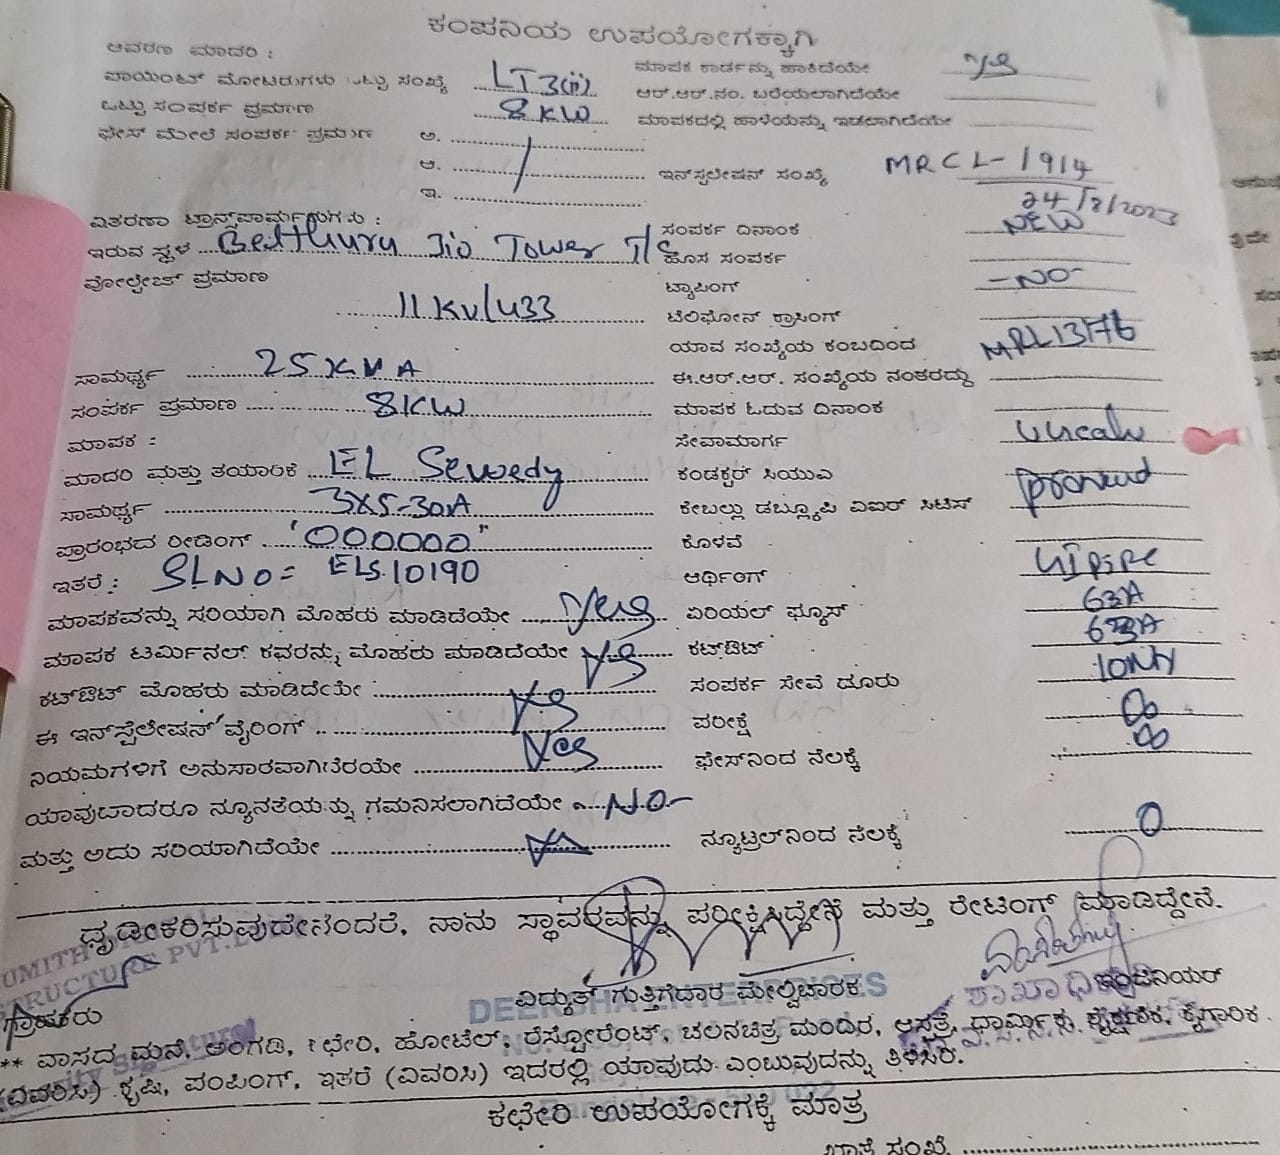 ಕಂಪನಿಯ ಉಪಯೋಗಕ್ಕಾಗಿ
ಆವರಣ ಮಾದರಿ :
ಪಾಯಿಂಟ್ ಮೋಟಾರುಗಳು ಒಟ್ಟು ಸಂಖ್ಯೆ LT3(ii) ಮಾಪಕ ಕಾರ್ಡನ್ನು ಹಾಕಿದೆಯೇ yes
ಒಟ್ಟು ಸಂಪರ್ಕ ಪ್ರಮಾಣ 8KW ಆರ್.ಆರ್.ನಂ. ಬರೆಯಲಾಗಿದೆಯೇ
ಫೇಸ್ ಮೇಲೆ ಸಂಪರ್ಕ ಪ್ರಮಾಣ ಅ. ಮಾಪಕದಲ್ಲಿ ಹಾಳೆಯನ್ನು ಇಡಲಾಗಿದೆಯೇ
ಆ.
ಇ. ಇನ್‌ಸ್ಟಲೇಷನ್ ಸಂಖ್ಯೆ MRCL-1914
ವಿತರಣಾ ಟ್ರಾನ್ಸ್‌ಫಾರ್ಮರುಗಳು : ಸಂಪರ್ಕ ದಿನಾಂಕ 24/8/2023
ಇರುವ ಸ್ಥಳ Jio Tower T/C ಹೊಸ ಸಂಪರ್ಕ NEW
ವೋಲ್ಟೇಜ್ ಪ್ರಮಾಣ 11KV/433 ಟ್ಯಾಪಿಂಗ್
ಟೆಲಿಫೋನ್ ಕ್ರಾಸಿಂಗ್ -NO-
ಯಾವ ಸಂಖ್ಯೆಯ ಕಂಬದಿಂದ
ಸಾಮರ್ಥ್ಯ 25 KVA ಈ.ಆರ್.ಆರ್. ಸಂಖ್ಯೆಯ ನಂತರದ್ದು
ಸಂಪರ್ಕ ಪ್ರಮಾಣ 8KW ಮಾಪಕ ಓದುವ ದಿನಾಂಕ
ಮಾಪಕ : ಸೇವಾಮಾರ್ಗ
ಮಾದರಿ ಮತ್ತು ತಯಾರಿಕೆ EL Sewedy ಕಂಡಕ್ಟರ್ ಸಿಯುಎ
ಸಾಮರ್ಥ್ಯ 3X5-30A ಕೇಬಲ್ಲು ಡಬ್ಲ್ಯೂಪಿ ವಿಐಆರ್ ಸಿಟಿಸ್
ಪ್ರಾರಂಭದ ರೀಡಿಂಗ್ "000000" ಕೊಳವೆ
ಇತರೆ : SLNO= ELS10190 ಆರ್ಥಿಂಗ್ GIPIPE
ಮಾಪಕವನ್ನು ಸರಿಯಾಗಿ ಮೊಹರು ಮಾಡಿದೆಯೇ Yes ಏರಿಯಲ್ ಫ್ಯೂಸ್ 63A
ಮಾಪಕ ಟರ್ಮಿನಲ್ ಕವರನ್ನು ಮೊಹರು ಮಾಡಿದೆಯೇ Yes ಕಟ್‌ಔಟ್ 63A
ಕಟ್‌ಔಟ್ ಮೊಹರು ಮಾಡಿದೆಯೇ Yes ಸಂಪರ್ಕ ಸೇವೆ ದೂರು
ಈ ಇನ್‌ಸ್ಟಲೇಷನ್ ವೈರಿಂಗ್ ಪರೀಕ್ಷೆ ∞
ನಿಯಮಗಳಿಗೆ ಅನುಸಾರವಾಗಿದೆಯೇ Yes ಫೇಸ್‌ನಿಂದ ನೆಲಕ್ಕೆ ∞
ಯಾವುದಾದರೂ ನ್ಯೂನತೆಯನ್ನು ಗಮನಿಸಲಾಗಿದೆಯೇ -NO-
ಮತ್ತು ಅದು ಸರಿಯಾಗಿದೆಯೇ ನ್ಯೂಟ್ರಲ್‌ನಿಂದ ನೆಲಕ್ಕೆ 0
ಧೃಡೀಕರಿಸುವುದೇನೆಂದರೆ, ನಾನು ಸ್ಥಾವರವನ್ನು ಪರೀಕ್ಷಿಸಿದ್ದೇನೆ ಮತ್ತು ರೇಟಿಂಗ್ ಮಾಡಿದ್ದೇನೆ.
ಗ್ರಾಹಕರು ವಿದ್ಯುತ್ ಗುತ್ತಿಗೆದಾರ ಮೇಲ್ವಿಚಾರಕ ಇಂಜಿನಿಯರ್
** ವಾಸದ ಮನೆ, ಅಂಗಡಿ, ಕಛೇರಿ, ಹೋಟೆಲ್, ರೆಸ್ಟೋರೆಂಟ್, ಚಲನಚಿತ್ರ ಮಂದಿರ, ಆಸ್ಪತ್ರೆ, ಧಾರ್ಮಿಕ, ಶೈಕ್ಷಣಿಕ, ಕೈಗಾರಿಕ
(ವಿವರಿಸಿ) ಕೃಷಿ, ಪಂಪಿಂಗ್, ಇತರೆ (ವಿವರಿಸಿ) ಇದರಲ್ಲಿ ಯಾವುದು ಎಂಬುವುದನ್ನು ತಿಳಿಸಿರಿ.
ಕಛೇರಿ ಉಪಯೋಗಕ್ಕೆ ಮಾತ್ರ
ಖಾತೆ ಸಂಖ್ಯೆ